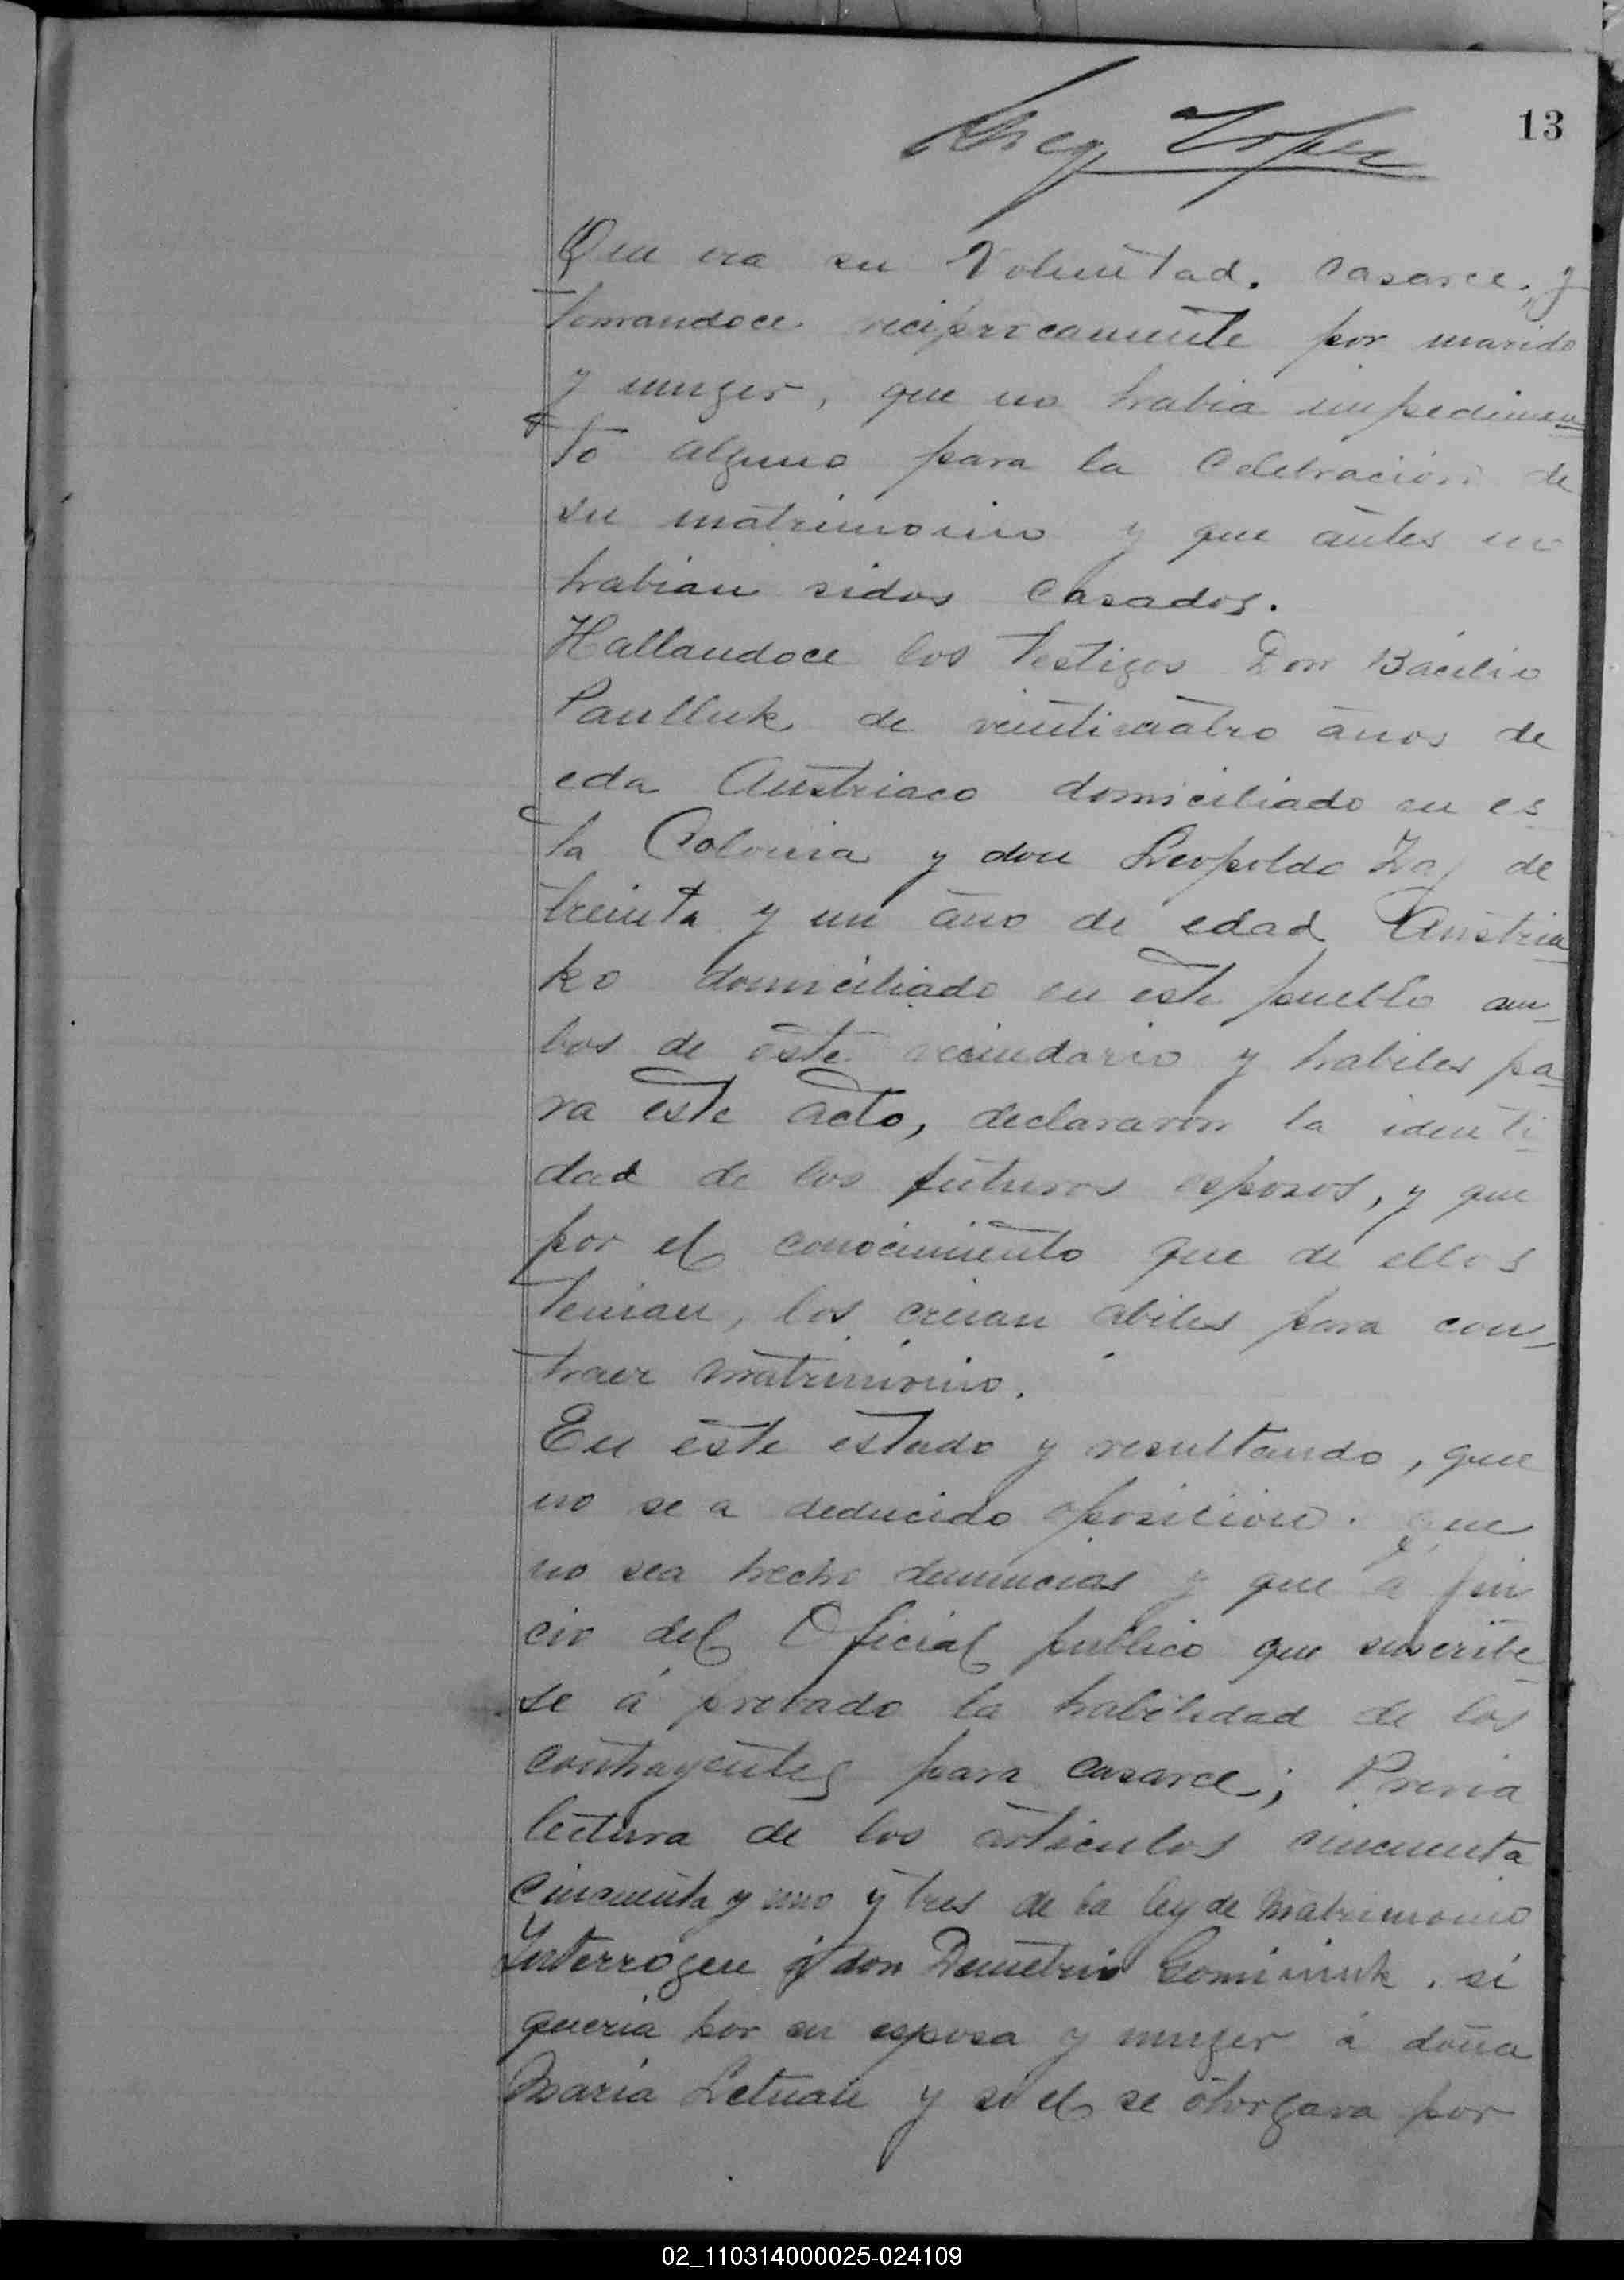 13
Que era su Voluntad. Casarce, y
tomandoce reciprocamente por marido
y muger, que no habia impedimen
to alguno para la Celebración de
su matrimonio y que antes no
habian sidos Casados.
Hallandoce los testigos Don Bacilio
Paulluk de veinticuatro años de
eda Austriaco domiciliado en es
ta Colonia y don Leopoldo de
treinta y un año de edad Austria
ko domiciliado en este pueblo am
bos de este vecindario y habiles pa
ra este acto, declararon la identi
dad de los futuros esposos, y que
por el conocimiento que de ellos
tenian, los creian abiles para con
traer matrimonio.
En este estado y resultando, que
no se a deducido oposicion. que
no sea hecho denuncias y que a jui
cio del Oficial publico que suscribe
se á probado la habilidad de los
contrayentes para casarce; Previa
lectura de los articulos cincuenta
cincuenta y uno y tres de la ley de Matrimonio
Interrogue á don Demetrio Gominiuk, si
queria por su esposa y muger á doña
Maria Letuan y si el se otorgava por
02_110314000025-024109